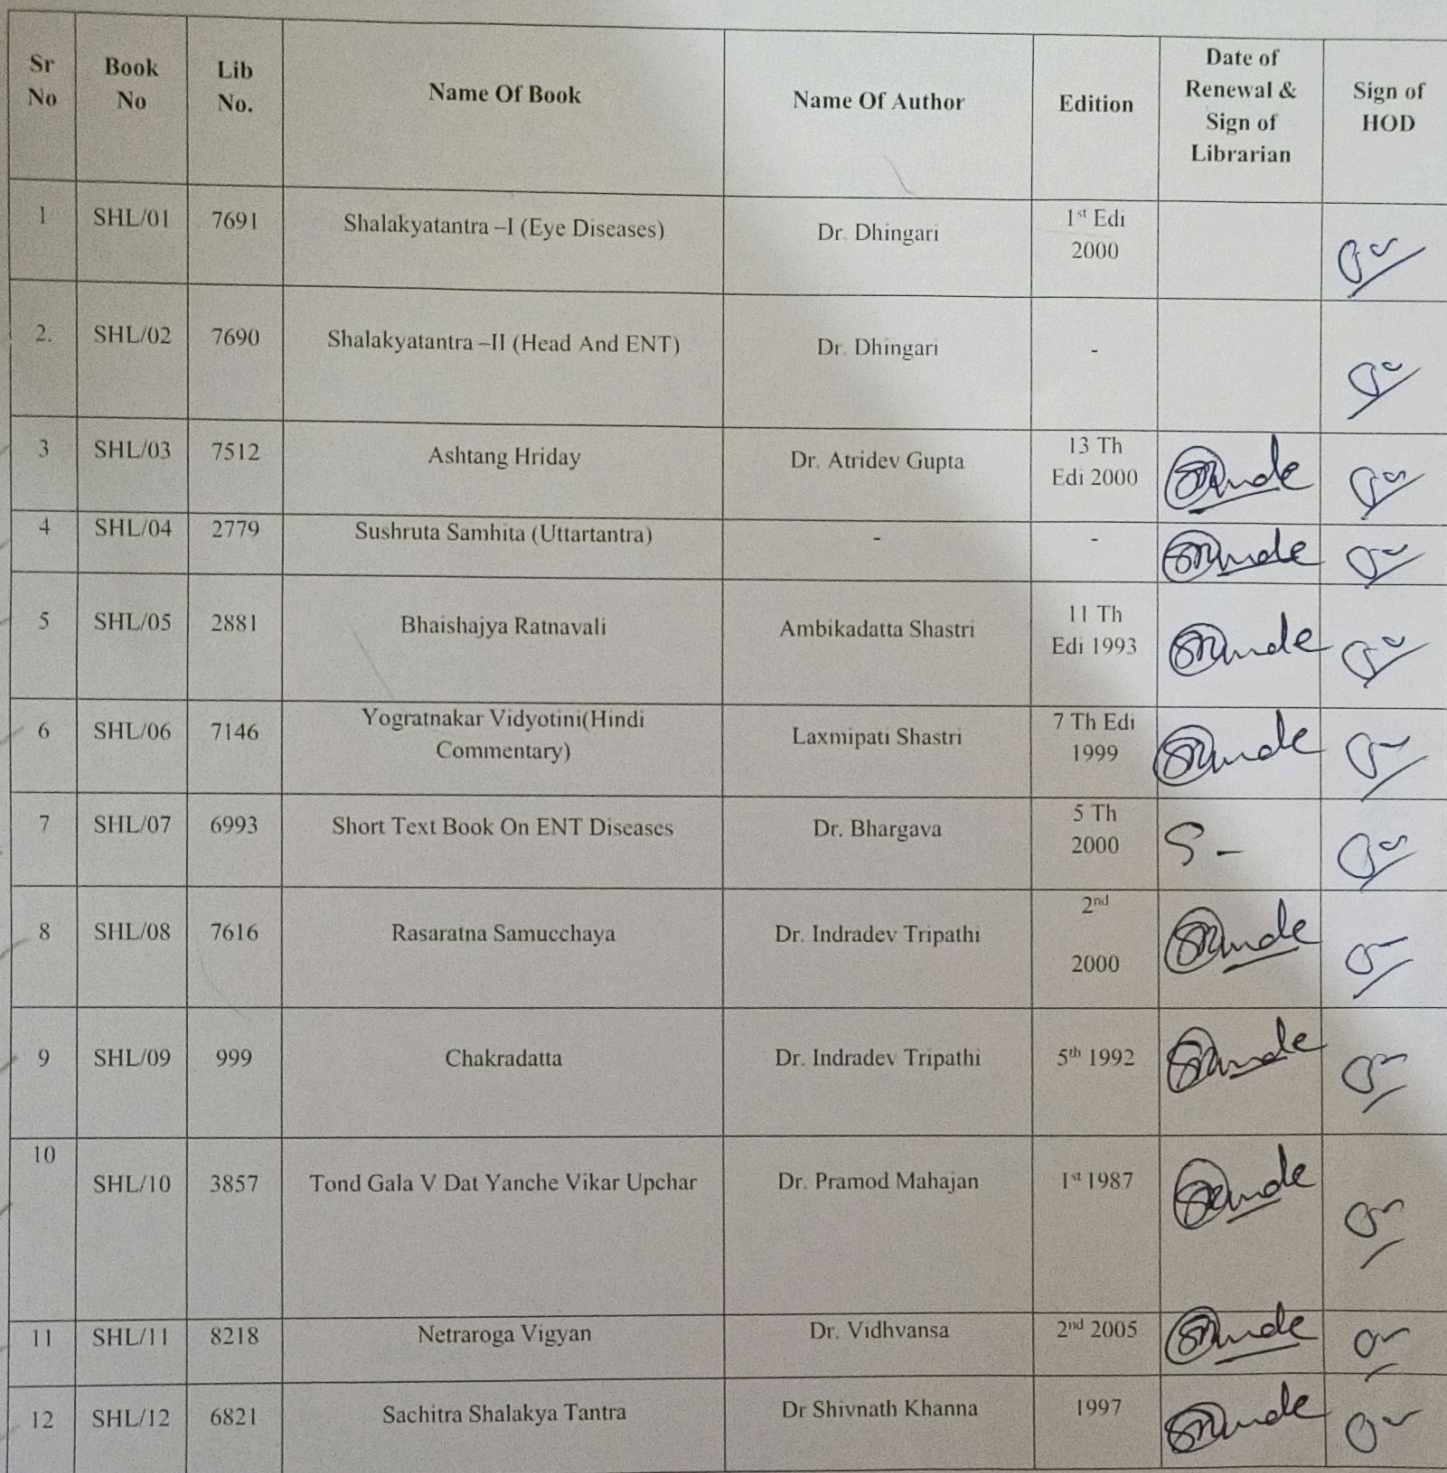 Sr No Book No Lib No. Name Of Book Name Of Author Edition Date of Renewal & Sign of Librarian Sign of HOD
1 SHL/01 7691 Shalakyatantra –I (Eye Diseases) Dr. Dhingari 1st Edi 2000
2. SHL/02 7690 Shalakyatantra –II (Head And ENT) Dr. Dhingari -
3 SHL/03 7512 Ashtang Hriday Dr. Atridev Gupta 13 Th Edi 2000
4 SHL/04 2779 Sushruta Samhita (Uttartantra) - -
5 SHL/05 2881 Bhaishajya Ratnavali Ambikadatta Shastri 11 Th Edi 1993
6 SHL/06 7146 Yogratnakar Vidyotini(Hindi Commentary) Laxmipati Shastri 7 Th Edi 1999
7 SHL/07 6993 Short Text Book On ENT Diseases Dr. Bhargava 5 Th 2000
8 SHL/08 7616 Rasaratna Samucchaya Dr. Indradev Tripathi 2nd 2000
9 SHL/09 999 Chakradatta Dr. Indradev Tripathi 5th 1992
10 SHL/10 3857 Tond Gala V Dat Yanche Vikar Upchar Dr. Pramod Mahajan 1st 1987
11 SHL/11 8218 Netraroga Vigyan Dr. Vidhvansa 2nd 2005
12 SHL/12 6821 Sachitra Shalakya Tantra Dr Shivnath Khanna 1997